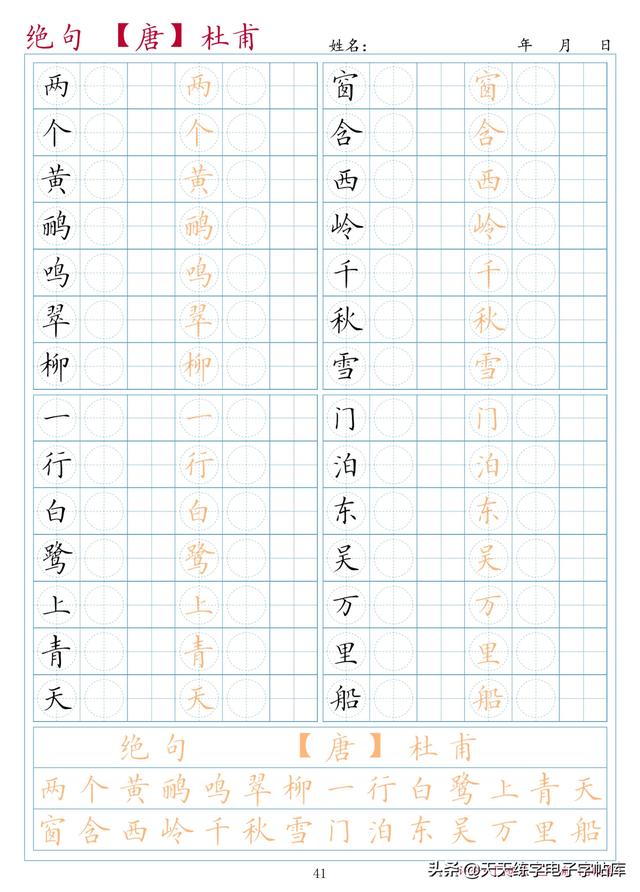 绝句 【唐】杜甫
姓名： 年 月 日
两 两 窗 窗
个 个 含 含
黄 黄 西 西
鹂 鹂 岭 岭
鸣 鸣 千 千
翠 翠 秋 秋
柳 柳 雪 雪
一 一 门 门
行 行 泊 泊
白 白 东 东
鹭 鹭 吴 吴
上 上 万 万
青 青 里 里
天 天 船 船
绝句 【唐】杜甫
两个黄鹂鸣翠柳一行白鹭上青天
窗含西岭千秋雪门泊东吴万里船
41
头条@天天练字电子字帖库